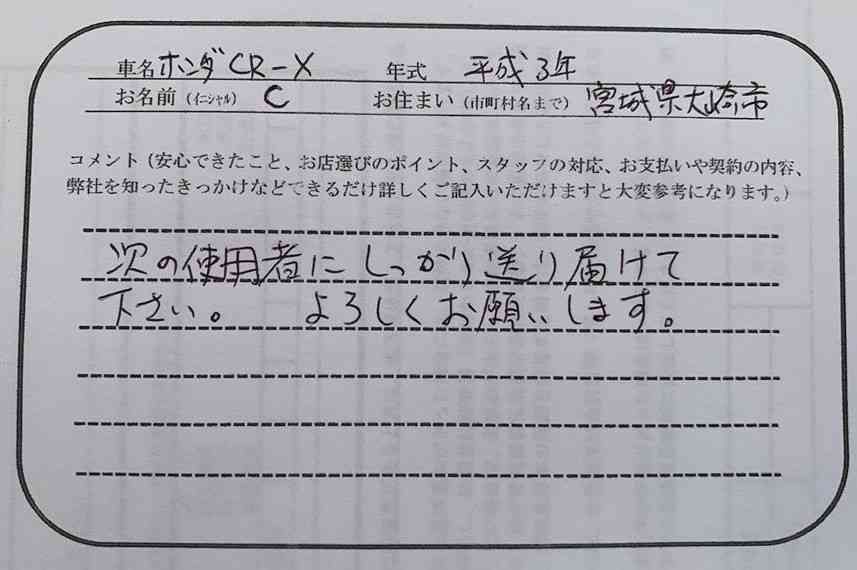 車名 ホンダCR-X 年式 平成3年
お名前(イニシャル) C お住まい(市町村名まで) 宮城県大崎市
コメント(安心できたこと、お店選びのポイント、スタッフの対応、お支払いや契約の内容、
弊社を知ったきっかけなどできるだけ詳しくご記入いただけますと大変参考になります。)
次の使用者にしっかり送り届けて
下さい。 よろしくお願いします。